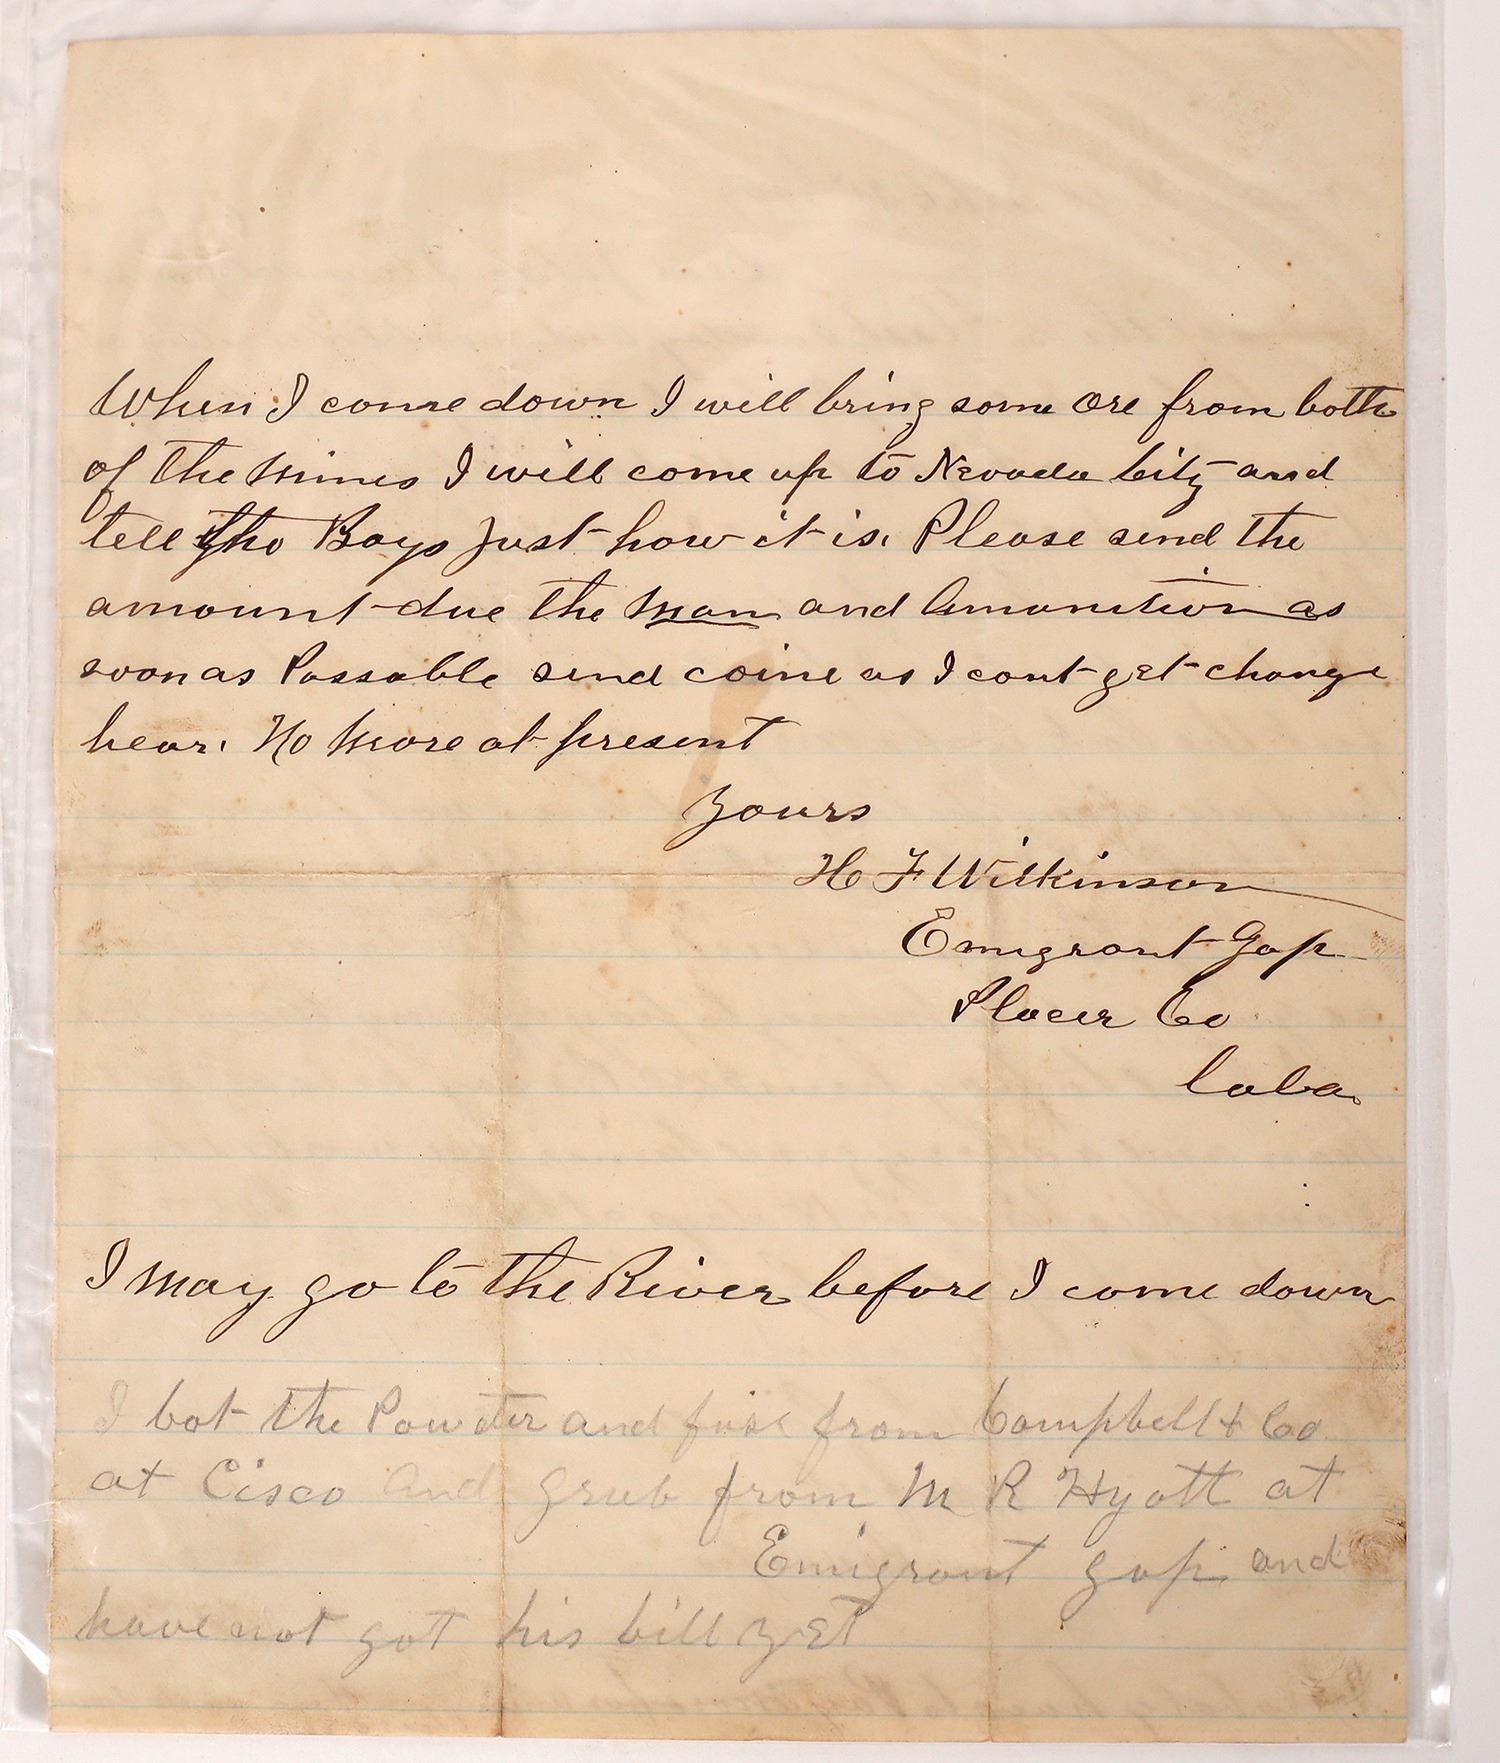 When I come down I will bring some Ore from both
of the Mines I will come up to Nevada City and
tell the Boys Just how it is. Please send the
amount due the Man and Amunition as
soon as Possable send coine as I cant get change
hear. No More at present
Yours
H F Wilkinson
Emigrant Gap
Placer Co
Cala.
I May go to the River before I come down
I bot the Powder and fuse from Campbell & Co
at Cisco and grub from M R Hyatt at
Emigrant gap and
have not got his bill yet